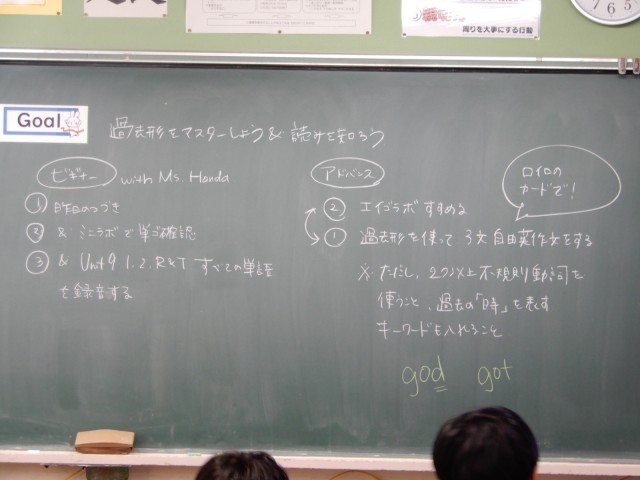 周りを大事にする行動
Goal
過去形をマスターしよう & 読みを知ろう
ビギナー with Ms. Honda
① 昨日のつづき
② & ミニラボで単語確認
③ & Unit 9 1. 2. R&T すべての単語
を録音する
アドバンス
ロイロの
カードで!
② エイゴラボすすめる
① 過去形を使って 3文自由英作文をする
※ ただし、2つ以上不規則動詞を
使うこと、過去の「時」を表す
キーワードも入れること
god got
7 6 5